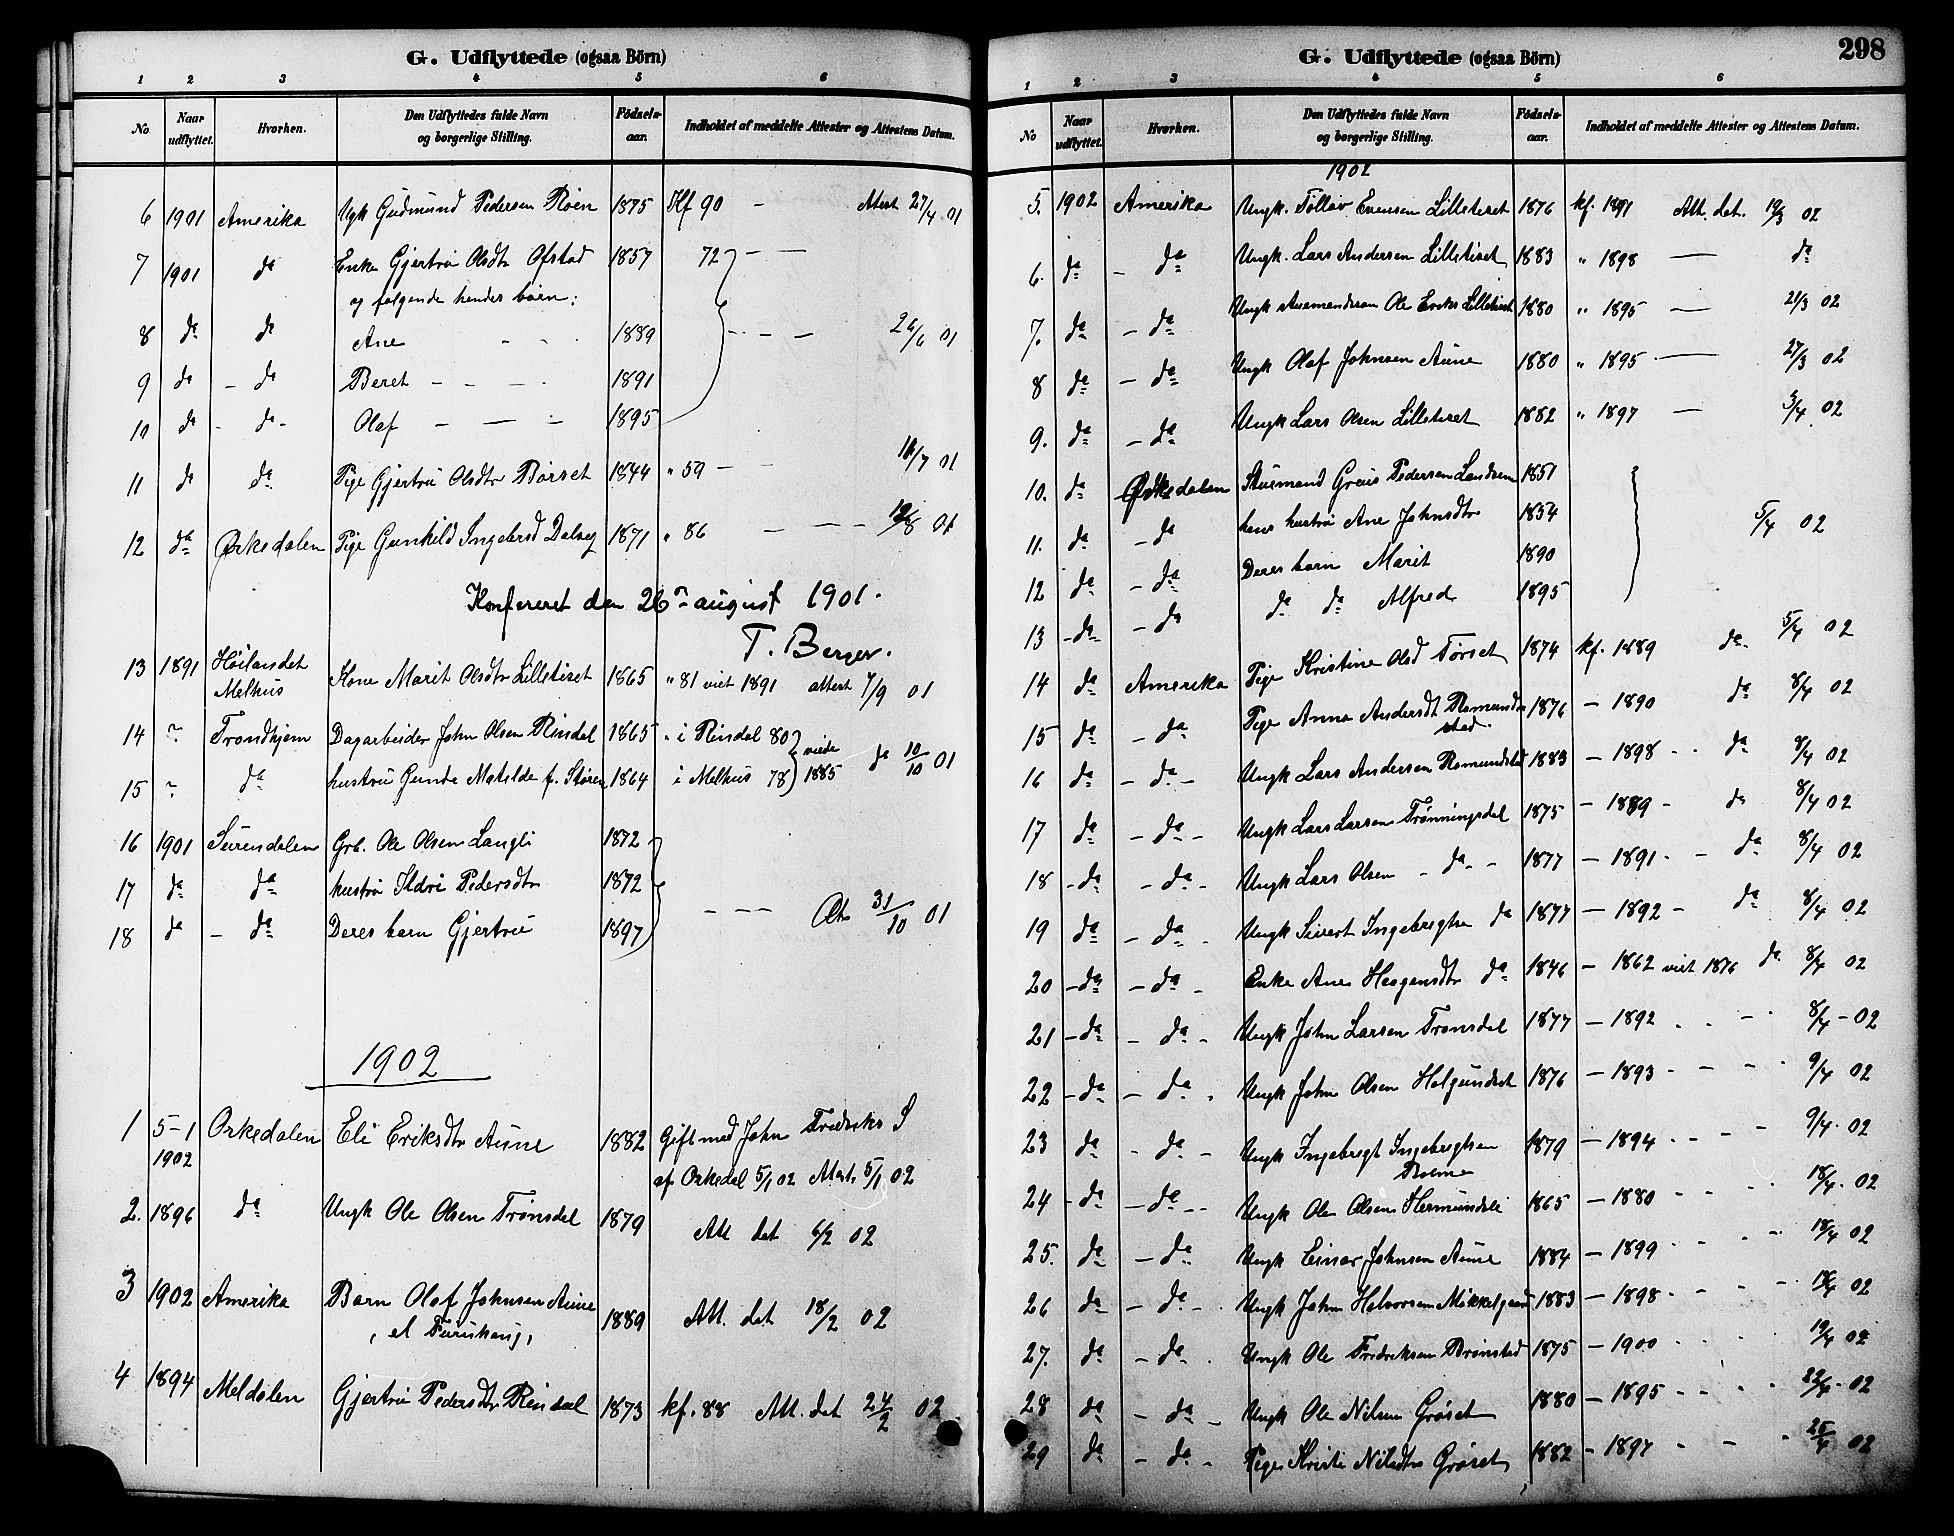 G. Udflyttede (ogsaa Börn)
1 2 3 4 5 6
No. Naar udflyttet. Hvorhen. Den Udflyttedes fulde Navn og borgerlige Stilling. Fødselsaar. Indholdet af meddelte Attester og Attestens Datum.
6 1901 Amerika Ugk Gudmund Pedersen Røen 1875 Kf 90 - Attest 27/4 01
7 1901 da Enke Gjertru Olsdtr Ofstad 1857 72 - -
og følgende hendes børn:
8 da da Ane - - 1889 - - - 26/6 01
9 da - da Beret - - - - 1891
10 da - da - Olaf - - - 1895
11 da da Pige Gjertru Olsdtr Børset 1844 " 59 - - 11/7 01
12 da Ørkedalen Pige Gunhild Ingebrsd Dalseg 1871 " 86 - - - 19/8 01
Konfereret den 26 august 1901.
T. Berger.
13 1891 Høilandet Melhus Kone Marit Olsdtr Lilletiset 1865 " 81 viet 1891 attest 7/9 01
14 Trondhjem Dagarbeider John Olsen Rindal 1865 " i Rindal 80 viede 1885 da 10/10 01
15 da hustru Gunda Matilde f. Støren 1864 i Melhus 78
16 1901 Surendalen Grb. Ole Olsen Langli 1872
17 da da hustru Ildri Pedersdtr 1872
18 da - da Deres barn Gjertru 1897 - - - 31/10 01
1902
1 5-1 1902 Orkedalen Eli Eriksdtr Aune 1882 Gift med John Fredriks S
af Orkedal 5/1 02 Attest 5/1 02
2. 1896 da Ungk Ole Olsen Trønsdal 1879 Att det 6/2 02
3 1902 Amerika Barn Olaf Johnsen Aune 1889 Att. det 18/2 02
4 1894 Meldalen Gjertru Pedersdtr Rindal 1873 kf. 88 Att. det 24/2 02
G. Udflyttede (ogsaa Börn) 298
1 2 3 4 5 6
No Naar udflyttet. Hvorhen. Den Udflyttedes fulde Navn og borgerlige Stilling. Fødselsaar. Indholdet af meddelte Attester og Attestens Datum.
1902
5. 1902 Amerika Ungk. Tollov Evensen Lilletiset 1876 kf. 1891 Att. det. 19/3 02
6. da - da Ungk. Lars Andersen Lilletiset 1883 " 1898 - da
7. da - da Ungk Ole Lilletiset 1880 " 1895 - 21/3 02
8 da - da Ungk Olaf Johnsen Aune 1880 " 1895 - 27/3 02
9. da - da Ungk Lars Olsen Lilletiset 1882 " 1897 - 3/4 02
10. da Ørkedalen Pedersen Landsem 1851
11. da - da hans hustru Ane Johnsdtr 1854 5/4 02
12 da - da Deres barn Marit 1890
13 - da - - da da da Alfred 1895
14 da Amerika Pige Kristine Olsd Tørset 1874 kf. 1889 da. 5/4 02
15 da - da Pige Anne Andersdt Romundstad 1876 - 1890 da 8/4 02
16 da - da - Ungk Lars Andersen Romundstad 1883 - 1898 - - da 8/4 02
17 da - da - Ungk Lars Larsen Trønningsdal 1875 - 1889 - da 8/4 02
18 - da - da - Ungk Lars Olsen - da - - 1877 - 1891 - - da 8/4 02
19 da - da - Ungk Sivert Ingebrigtsen da 1877 - 1892 - da 8/4 02
20 - da - da - Enke Ane Haagensdtr da 1846 - 1862 viet 1876 da 8/4 02
21 - da - da - Ungk John Larsen Trønsdal 1877 - 1892 - - - 8/4 - 02
22 - da - da - Ungk John Olsen Halgunset 1876 - 1893 - - - - 9/4 02
23 da - da - Ungk Ingebrigt Ingebrigtsen 1879 - 1894 - - - - 9/4 - 02
24 - da - da - - Ungk Ole Olsen Hermundsli 1865 - 1880 - - - - 18/4 - 02
25. da - da Ungk Einar Johnsen Aune 1884 - 1899 - - - - 18/4 02
26 da - da - - Ungk John Halvorsen Mikkelgaard 1883 - 1898 - - - - 18/4 02
27. da - da - Ungk Ole Fredriksen Brønstad 1875 - 1900 - - - 19/4 02
28 da - da - Ungk Ole Nilsen Grøset 1880 - 1895 - - - - 22/4 - 02
29 da - da - Pige Kristi Nilsdtr Grøset 1882 - 1897 - - - 25/4 02